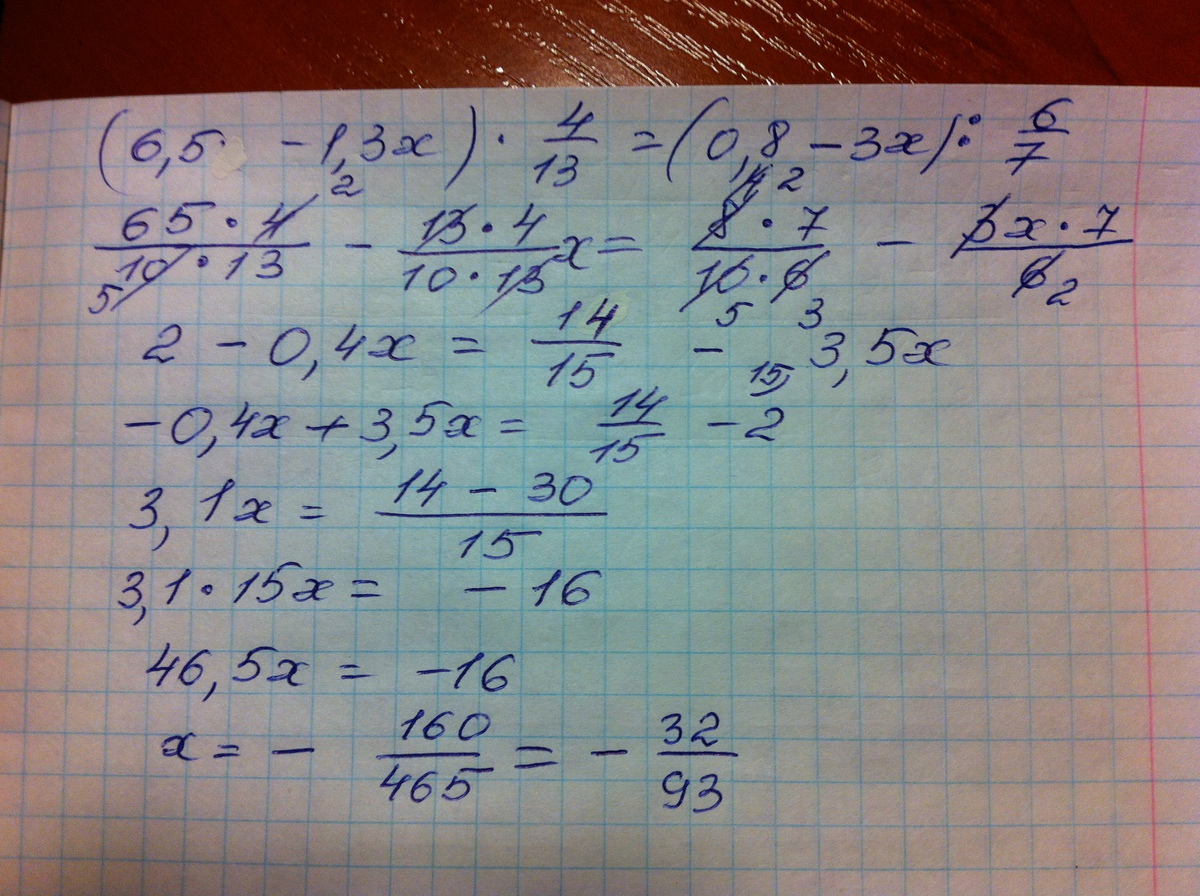 (6,5 - 1,3x) · 4/13 = (0,8 - 3x) : 6/7
65 · 4/10 · 13 - 13 · 4/10 · 13 x = 8 · 7/10 · 6 - 3x · 7/6
2 - 0,4x = 14/15 - 3,5x
-0,4x + 3,5x = 14/15 - 2
3,1x = 14 - 30/15
3,1 · 15x = -16
46,5x = -16
x = - 160/465 = - 32/93